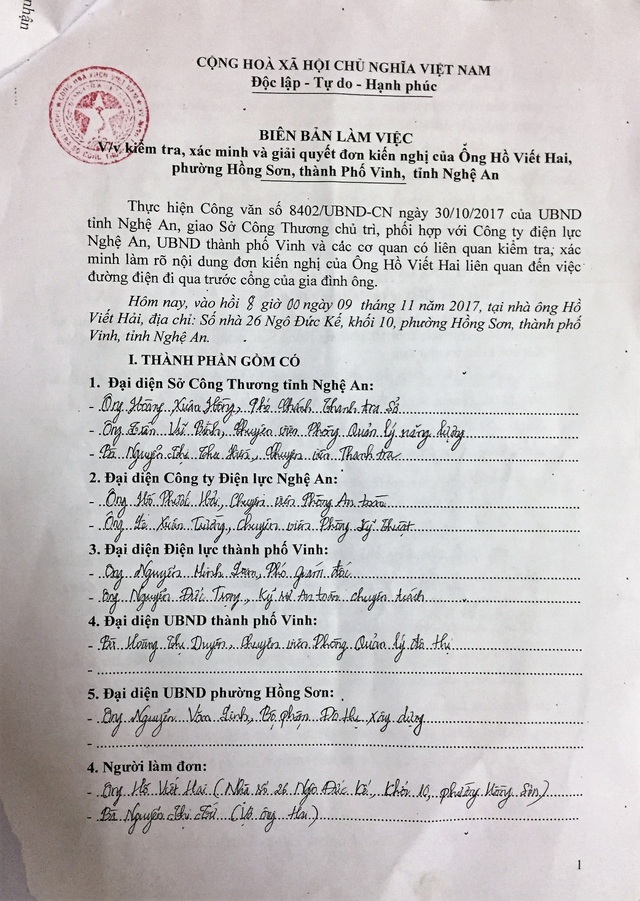 nhận
CỘNG HOÀ XÃ HỘI CHỦ NGHĨA VIỆT NAM
Độc lập - Tự do - Hạnh phúc
BIÊN BẢN LÀM VIỆC
V/v kiểm tra, xác minh và giải quyết đơn kiến nghị của Ông Hồ Viết Hai,
phường Hồng Sơn, thành Phố Vinh, tỉnh Nghệ An
Thực hiện Công văn số 8402/UBND-CN ngày 30/10/2017 của UBND
tỉnh Nghệ An, giao Sở Công Thương chủ trì, phối hợp với Công ty điện lực
Nghệ An, UBND thành phố Vinh và các cơ quan có liên quan kiểm tra, xác
minh làm rõ nội dung đơn kiến nghị của Ông Hồ Viết Hai liên quan đến việc
đường điện đi qua trước cổng của gia đình ông.
Hôm nay, vào hồi 8 giờ 00 ngày 09 tháng 11 năm 2017, tại nhà ông Hồ
Viết Hải, địa chỉ: Số nhà 26 Ngô Đức Kế, khối 10, phường Hồng Sơn, thành phố
Vinh, tỉnh Nghệ An.
I. THÀNH PHẦN GỒM CÓ
1. Đại diện Sở Công Thương tỉnh Nghệ An:
- Ông Hoàng Xuân Hồng, Phó Chánh Thanh tra Sở
- Ông Trần Vũ Bình, Chuyên viên Phòng Quản lý năng lượng
- Bà Nguyễn Thị Thu Hiền, Chuyên viên Thanh tra
2. Đại diện Công ty Điện lực Nghệ An:
- Ông Hồ Phước Hải, Chuyên viên Phòng An toàn
- Ông Lê Xuân Tường, Chuyên viên Phòng Kỹ Thuật
3. Đại diện Điện lực thành phố Vinh:
- Ông Nguyễn Minh Phó giám đốc
- Ông Nguyễn Đức Trọng, Kỹ sư An toàn chuyên trách
4. Đại diện UBND thành phố Vinh:
- Bà Hoàng Thị Duyên, Chuyên viên Phòng Quản lý đô thị
-
5. Đại diện UBND phường Hồng Sơn:
- Ông Nguyễn Văn Linh, Bộ phận Đô thị xây dựng
-
4. Người làm đơn:
- Ông Hồ Viết Hai (Nhà số 26 Ngô Đức Kế, Khối 10, phường Hồng Sơn)
- Bà Nguyễn Thị Tú (Vợ ông Hai)
1